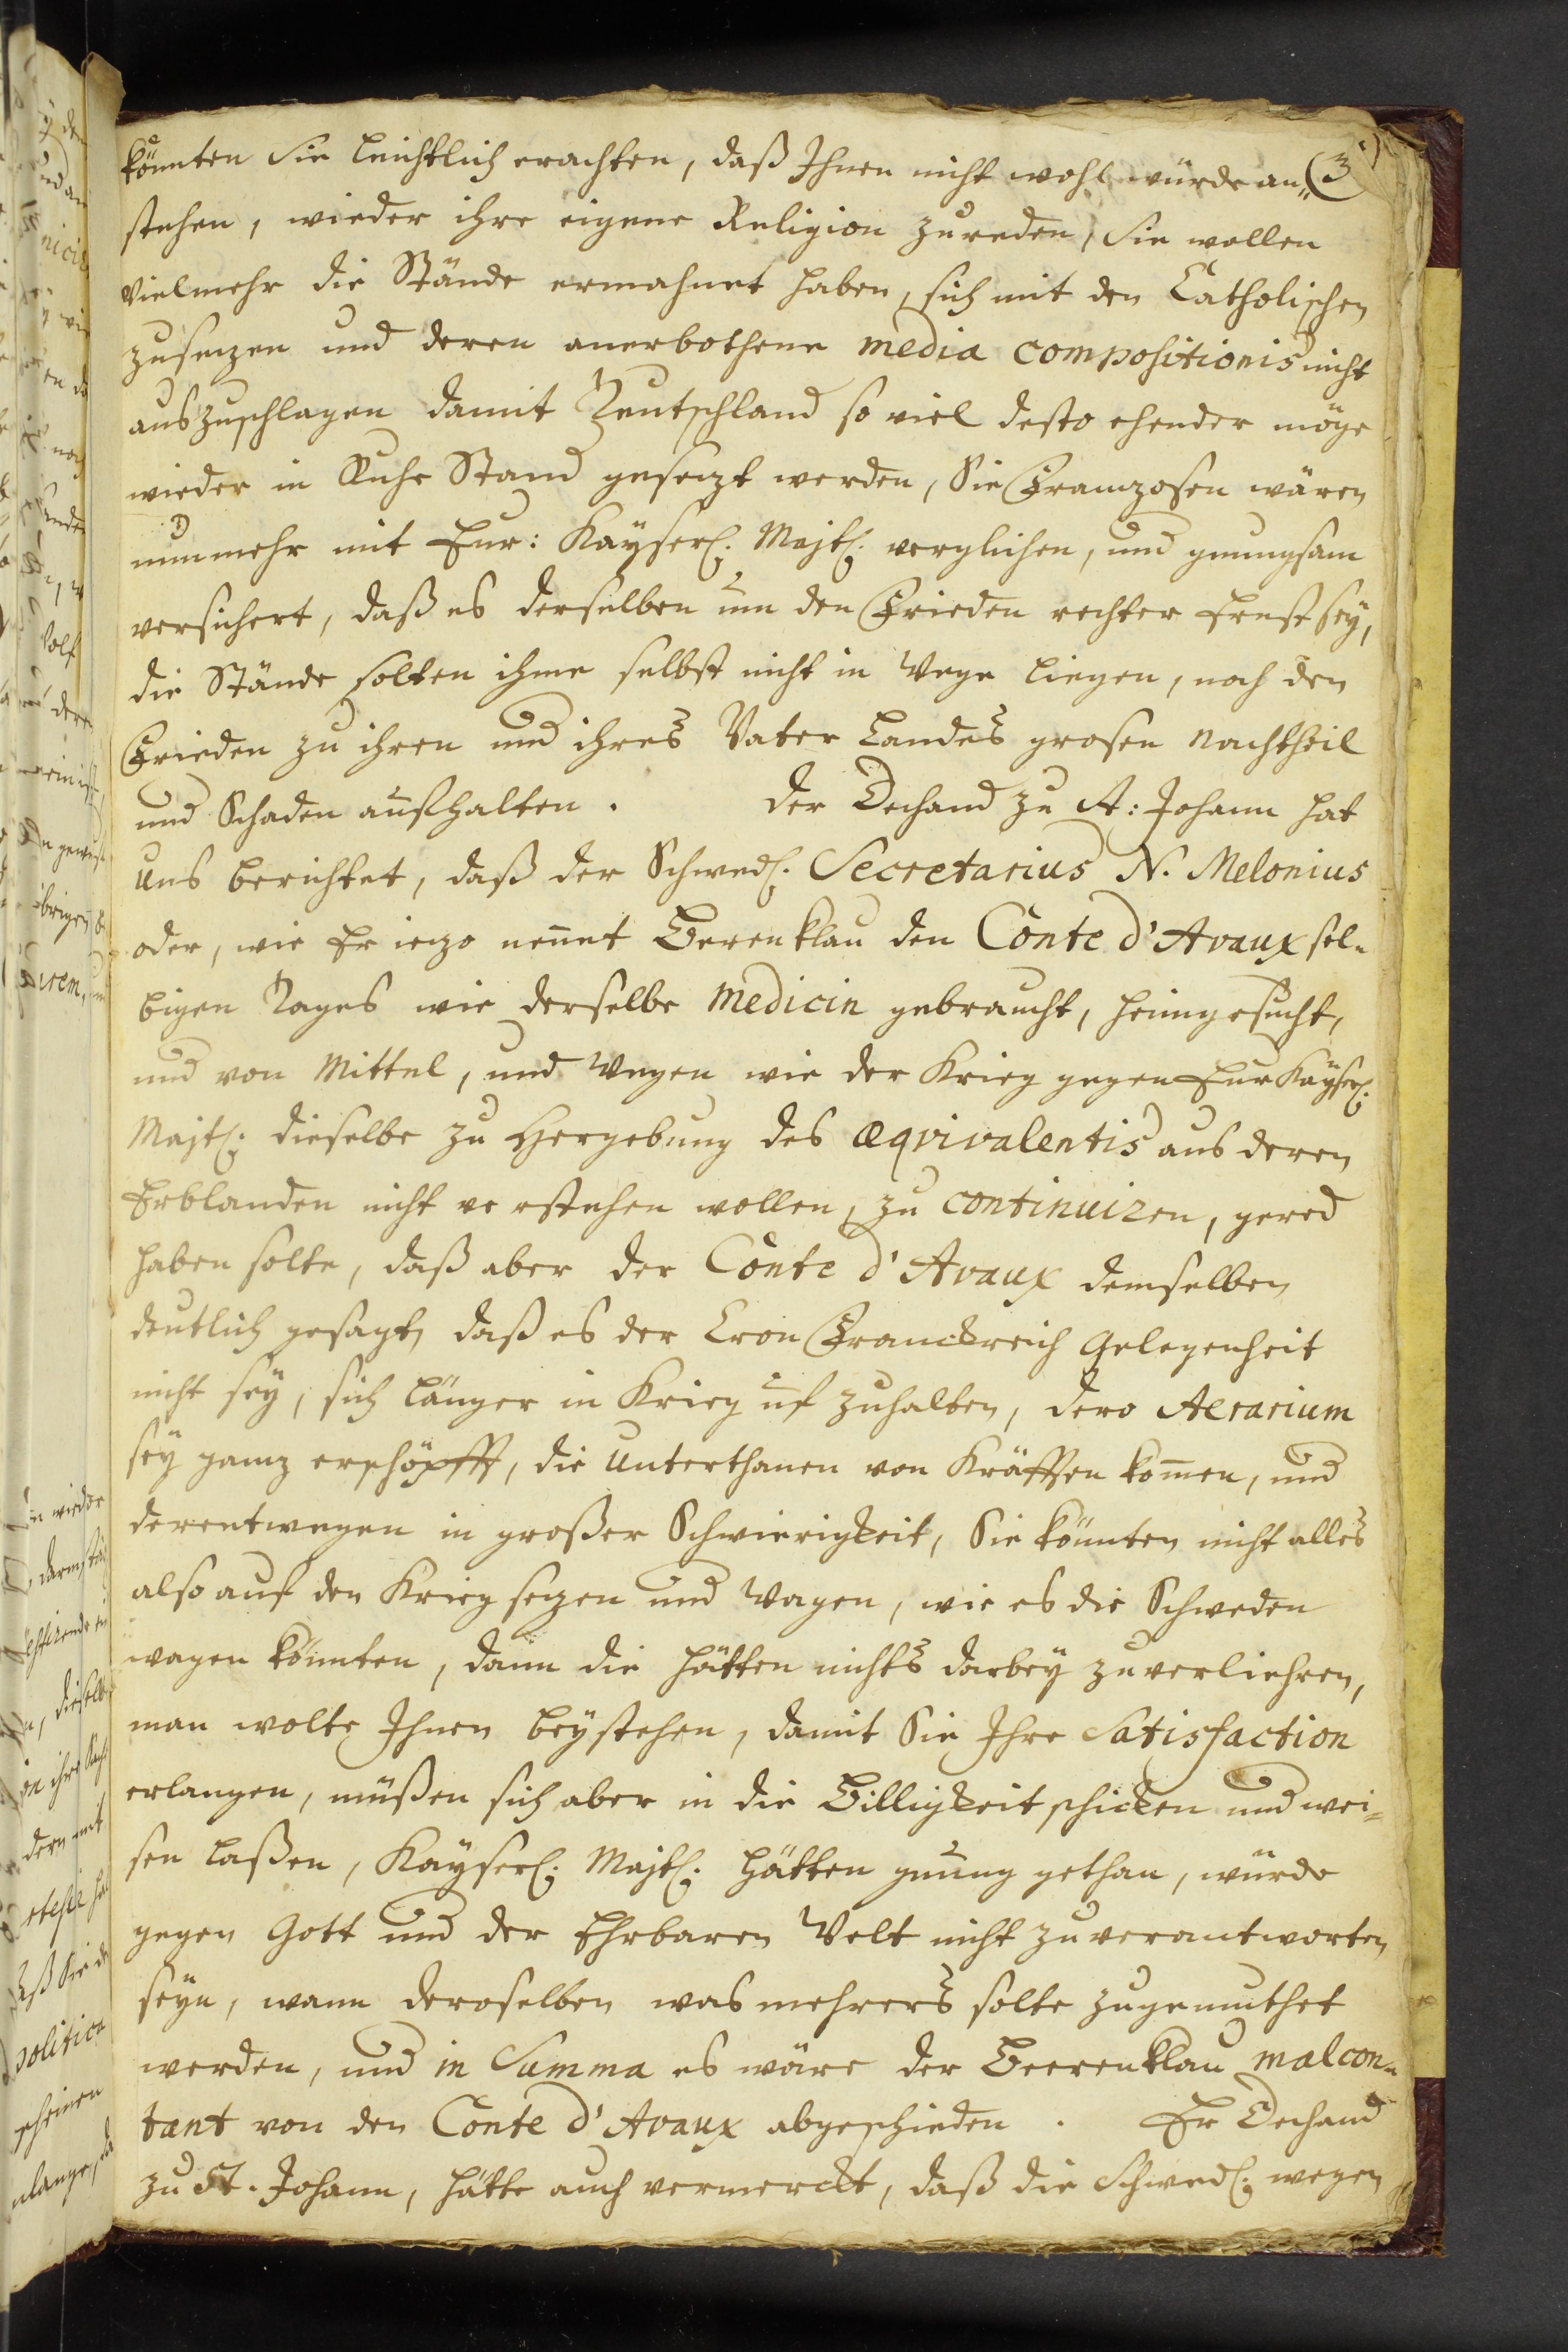 könnten Sie leichtlich erachten, daß Ihnen nicht wohl würde an„ (3
stehen, wieder ihre eigene Religion zureden, Sie wollen
vielmehr die Stände ermahnet haben, sich mit den Catholischen
zusezen und deren anerbothene media compositionis nicht
auszuschlagen damit Teutschland so viel desto ehender möge
wieder in Ruhe Stand gesezt werden, Sie Franzosen wären
nunmehr mit Eur: Kayserl. Majtl. verglichen, und gnungsam
versichert, daß es derselben um den Frieden rechter Ernst sey,
die Stände solten ihme selbst nicht in Wege liegen, noch den
Frieden zu ihren und ihres Vater Landes grosen Nachtheil
und Schaden aufhalten. Der Dechand zu St: Johann hat
uns berichtet, daß der Schwed. Secretarius N. Melonius
oder, wie Er iezo nennet Beerenklau den Conte d'Avaux sel„
bigen Tages wie derselbe Medicin gebraucht, heimgesucht,
und von Mittel, und Wegen wie der Krieg gegen Eur Kayserl.
Majtl. dieselbe zu Hergebung des æqvivalentis aus deren
Erblanden nicht verstehen wollen, zu continuiren, gered
haben solte, daß aber der Conte d'Avaux demselben
deutlich gesagt, daß es der Cron Franckreich Gelegenheit
nicht sey, sich länger in Krieg uf zuhalten, dero Aerarium
sey ganz erschöpfft, die Unterthanen von Kräfften kom̄en, und
derentwegen in großer Schwierigkeit, Sie könnten nicht alles
also auf den Krieg sezen und wagen, wie es die Schweden
wagen könnten, dann die hätten nichts darbey zuverliehren,
man wolte Ihnen beystehen, damit Sie Ihre Satisfaction
erlangen, müßen sich aber in die Billigkeit schicken und wei=
sen laßen, Kayserl. Majtl. hätten gnung gethan, würde
gegen Gott und der Ehrbaren Welt nicht zuverantworten
seyn, wann deroselben was mehrers solte zugemuthet
werden, und in Summa es wäre der Beerenklau malcon„
tant von den Conte d'Avaux abgeschieden. Er Dechand
zu St. Johann, hätte auch vermerckt, daß die Schwed. wegen